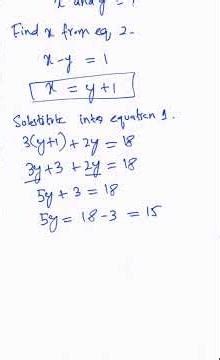 x and y = ?
Find x from eq 2.
x - y = 1
x = y + 1
Substitute into equation 1.
3(y+1) + 2y = 18
3y + 3 + 2y = 18
5y + 3 = 18
5y = 18 - 3 = 15